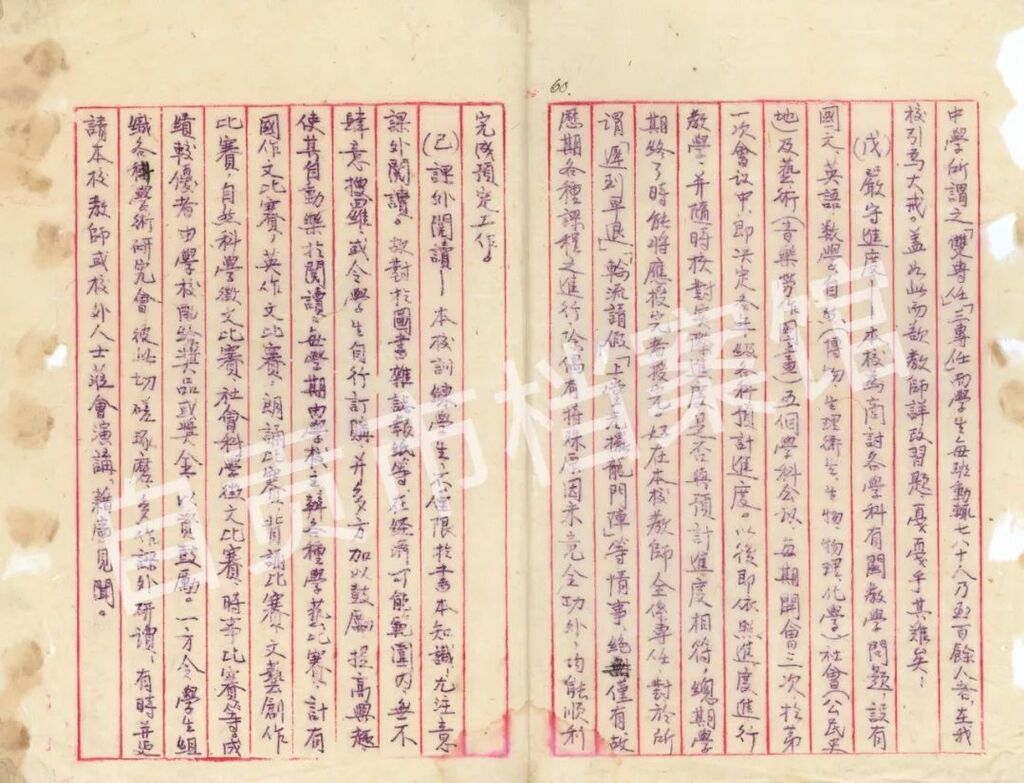 60.
中學所謂之「雙專任」「三專任」而學生每班動輒七八十人乃至百餘人者，在我
校引為大戒。蓋如此而欲教師詳改習題，戛戛乎其難矣！
(戊)嚴守進度——本校為商討各學科有關教學問題，設有
國文、英語、數學、自然(博物生理衛生、生物物理、化學)社會(公民史
地)及藝術(音樂勞作圖畫)五個學科會议，每期開會三次，於第
一次會议中，即決定各年級各科預計進度。以後即依照進度進行
教學，并隨時核對實際進度是否與預計進度相符，總期學
期終了時能將應授完者授完，好在本校教師全係專任，對於所
謂「遲到早退」「輪流請假」「上堂龍門陣」等情事，絕無僅有，故
歷期各種課程之進行，除偶有特殊原因未竟全功外，均能順利
完成預定工作。
(己)課外閱讀——本校訓練學生不僅限於書本知識，尤注意
課外閱讀。故對於圖書雜誌報紙等，在經濟可能範圍內，無不
肆意搜羅，或令學生自行訂購，并多方加以鼓勵，提高興趣
使其自動樂於閱讀。每學期由學校主辦各種學藝比賽，計有
國作文比賽，英作文比賽，朗誦比賽，背誦比賽，文藝創作
比賽，自然科學徵文比賽，社會科學徵文比賽，時事比賽等成
績較優者由學校酌給獎品或獎金，以資鼓勵。一方令學生組
織各種學術研究會，彼此切磋琢磨，多作課外研讀，有時并延
請本校教師或校外人士蒞會演講，藉廣見聞。
自贡市档案馆